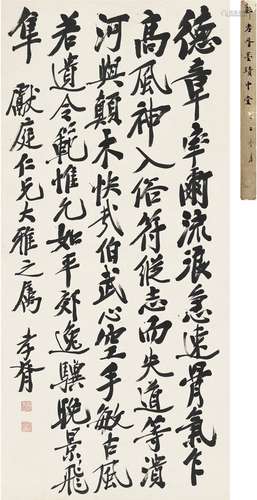 德章率爾流浪急速骨氣乍
高風神入俗符縱志而失道等潰
河與顛木快哉伯武心空手敏古風
若遺令範惟允如平郊逸驥晚景飛
隼
獻庭仁兄大雅之屬 孝胥